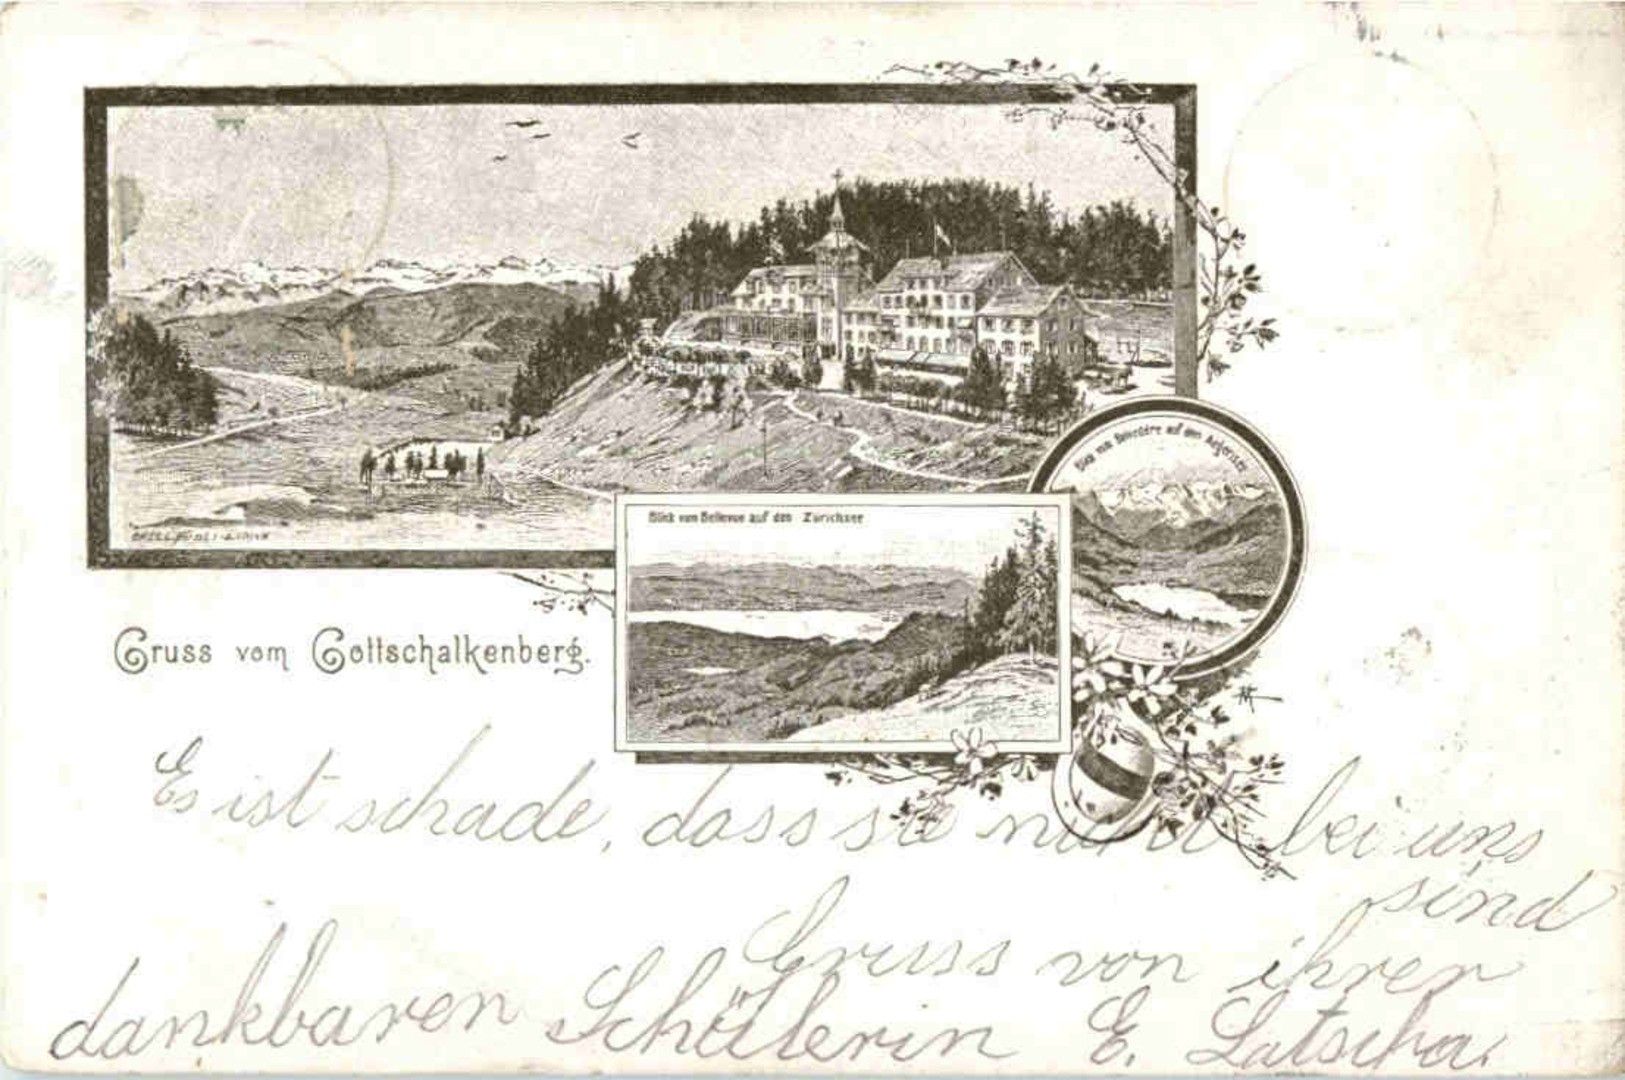 Blick vom Belvedère auf den Aegerisee
Blick vom Bellevue auf den Zürichsee
Gruss vom Gottschalkenberg.
Es ist schade, dass sie nicht bei uns
sind
Gruss von ihrer
dankbaren Schüllerin E. Latscha.